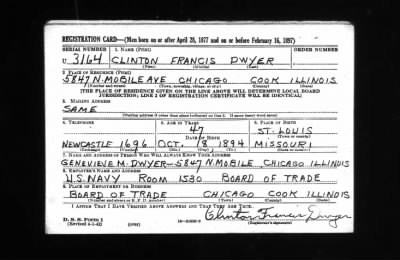 REGISTRATION CARD—(Men born on or after April 28, 1877 and on or before February 16, 1897)
SERIAL NUMBER 1. NAME (Print) ORDER NUMBER
U 3164 CLINTON FRANCIS DWYER
(First) (Middle) (Last)
2. PLACE OF RESIDENCE (Print)
5847 N. MOBILE AVE CHICAGO COOK ILLINOIS
(Number and street) (Town, township, village, or city) (County) (State)
[THE PLACE OF RESIDENCE GIVEN ON THE LINE ABOVE WILL DETERMINE LOCAL BOARD
JURISDICTION; LINE 2 OF REGISTRATION CERTIFICATE WILL BE IDENTICAL]
3. MAILING ADDRESS
SAME
[Mailing address if other than place indicated on line 2. If same insert word same]
4. TELEPHONE 5. AGE IN YEARS 6. PLACE OF BIRTH
47 ST. LOUIS
DATE OF BIRTH (Town or county)
NEWCASTLE 1696 OCT. 18 1894 MISSOURI
(Exchange) (Number) (Mo.) (Day) (Yr.) (State or country)
7. NAME AND ADDRESS OF PERSON WHO WILL ALWAYS KNOW YOUR ADDRESS
GENEVIEVE M. DWYER—5847 N. MOBILE, CHICAGO ILLINOIS
8. EMPLOYER'S NAME AND ADDRESS
U.S. NAVY ROOM 1530 BOARD OF TRADE
9. PLACE OF EMPLOYMENT OR BUSINESS
BOARD OF TRADE CHICAGO COOK ILLINOIS
(Number and street or R. F. D. number) (Town) (County) (State)
I AFFIRM THAT I HAVE VERIFIED ABOVE ANSWERS AND THAT THEY ARE TRUE.
D. S. S. Form 1 Clinton Francis Dwyer
(Revised 4-1-42) (over) (Registrant's signature)